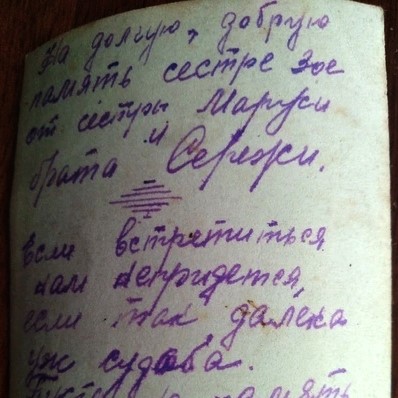 На долгую, добрую
память сестре Зое
от сестры Маруси
и
брата Сережи.
Если встретиться
нам непридется,
если так далека
уж судьба.
память